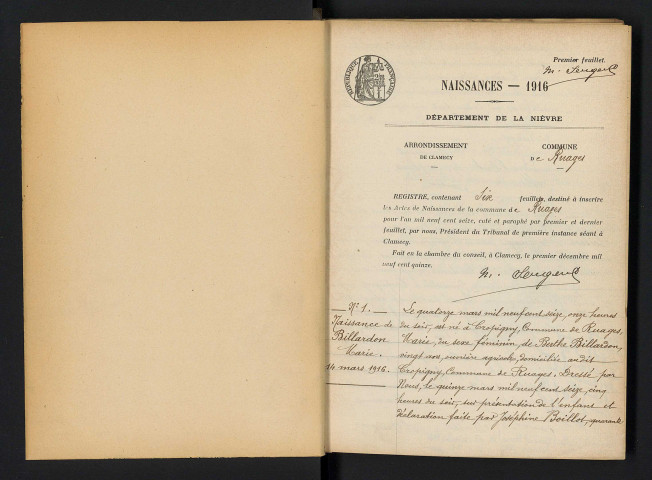 Premier feuillet.
RÉPUBLIQUE FRANÇAISE
NAISSANCES — 1916
DÉPARTEMENT DE LA NIÈVRE
ARRONDISSEMENT
DE CLAMECY
COMMUNE
de Ruages
REGISTRE, contenant Six feuillets, destiné à inscrire
les Actes de Naissances de la commune de Ruages
pour l'an mil neuf cent seize, coté et paraphé par premier et dernier
feuillet, par nous, Président du Tribunal de première instance séant à
Clamecy.
Fait en la chambre du conseil, à Clamecy, le premier décembre mil
neuf cent quinze.
N° 1.
Naissance de
Billardon
Marie.
14 mars 1916.
Le quatorze mars mil neuf cent seize, onze heures
du soir, est né à Cropigny, Commune de Ruages,
Marie, du sexe féminin, de Berthe Billardon,
vingt ans, ouvrière agricole, domiciliée audit
Cropigny, Commune de Ruages. Dressé par
Nous, le quinze mars mil neuf cent seize, cinq
heures du soir, sur présentation de l'enfant et
déclaration faite par Joséphine Boillot, quarante